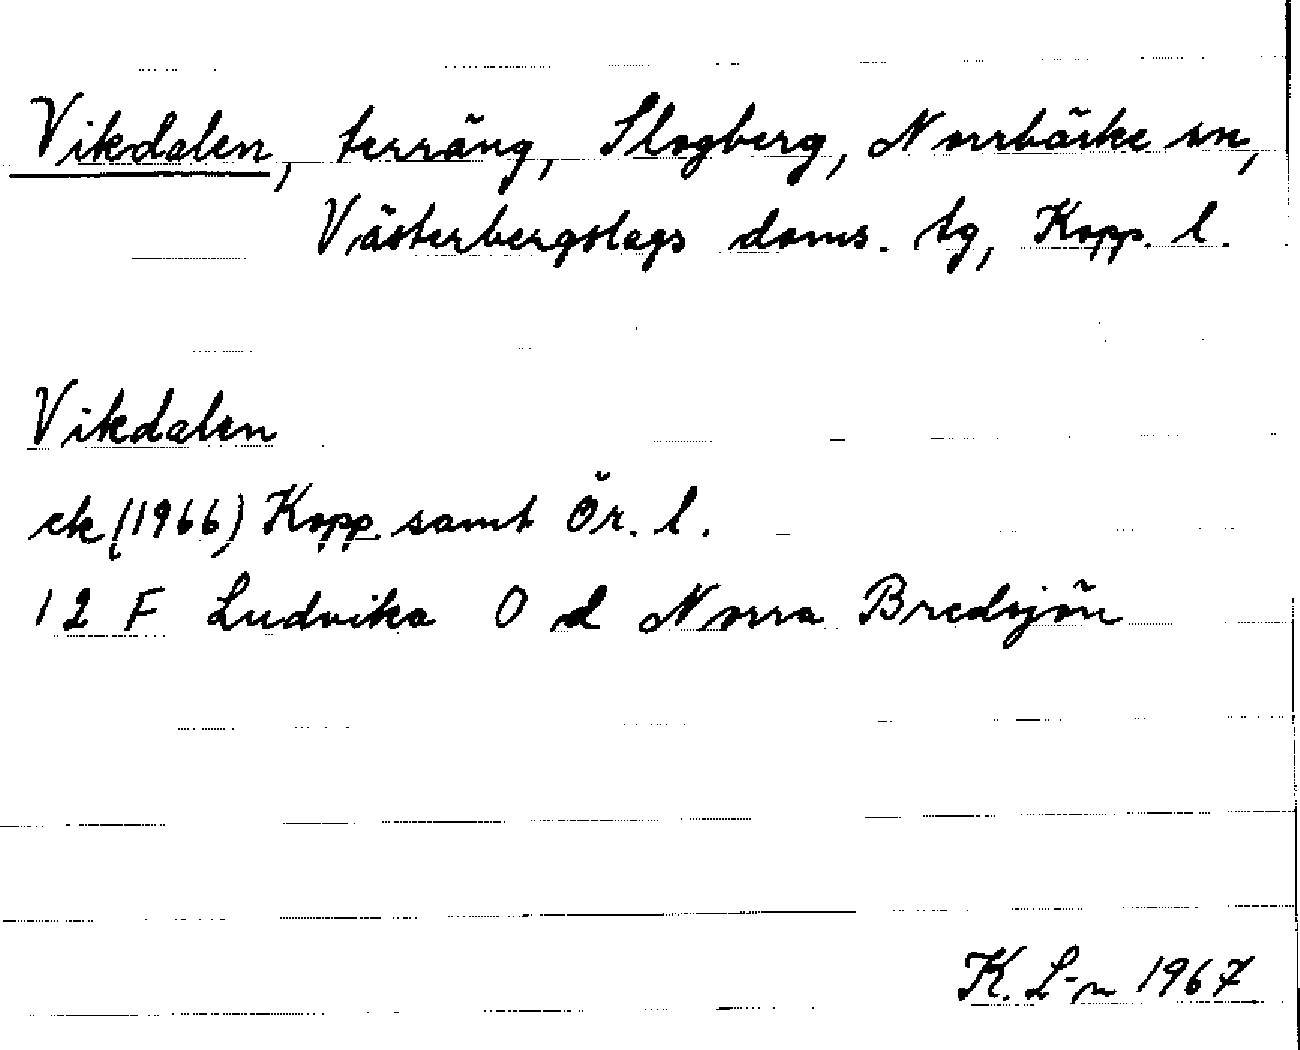 Vikdalen, terräng, Slogberg, Norrbärke sn,
Västerbergslags doms. tg, Kopp. l.
Vikdalen
ek (1966) Kopp. samt Ör. l.
12 F Ludvika 0 d Norra Bredsjön
K. L-n 1967